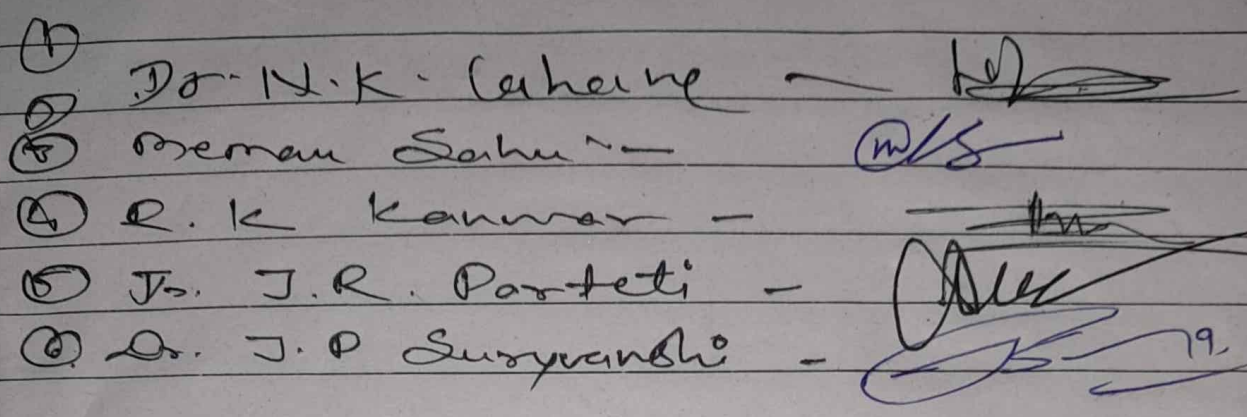 ①
② Dr. N.K. Lahare -
③ Sahu -
④ R. K Kanwar -
⑤ Dr. J.R. Parteti -
⑥ Dr. J.P Suryvanshi - 19.